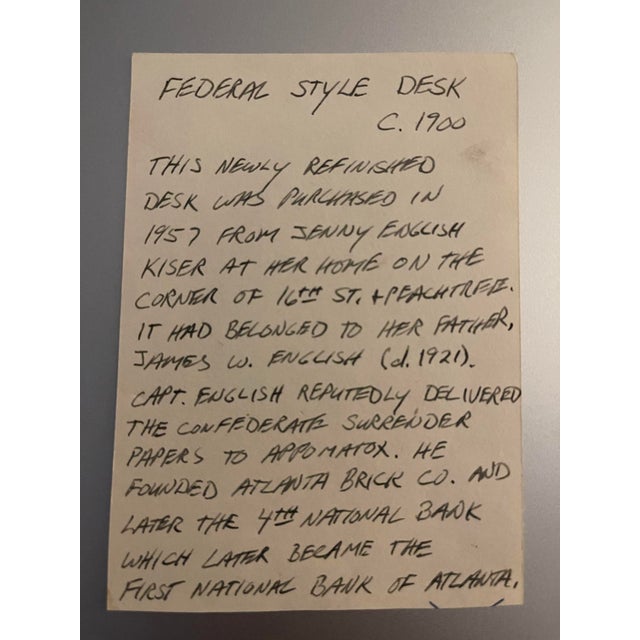 FEDERAL STYLE DESK
C. 1900
THIS NEWLY REFINISHED
DESK WAS PURCHASED IN
1957 FROM JENNY ENGLISH
KISER AT HER HOME ON THE
CORNER OF 16TH ST. + PEACHTREE.
IT HAD BELONGED TO HER FATHER,
JAMES W. ENGLISH (d. 1921).
CAPT. ENGLISH REPUTEDLY DELIVERED
THE CONFEDERATE SURRENDER
PAPERS TO APPOMATOX. HE
FOUNDED ATLANTA BRICK CO. AND
LATER THE 4TH NATIONAL BANK
WHICH LATER BECAME THE
FIRST NATIONAL BANK OF ATLANTA.